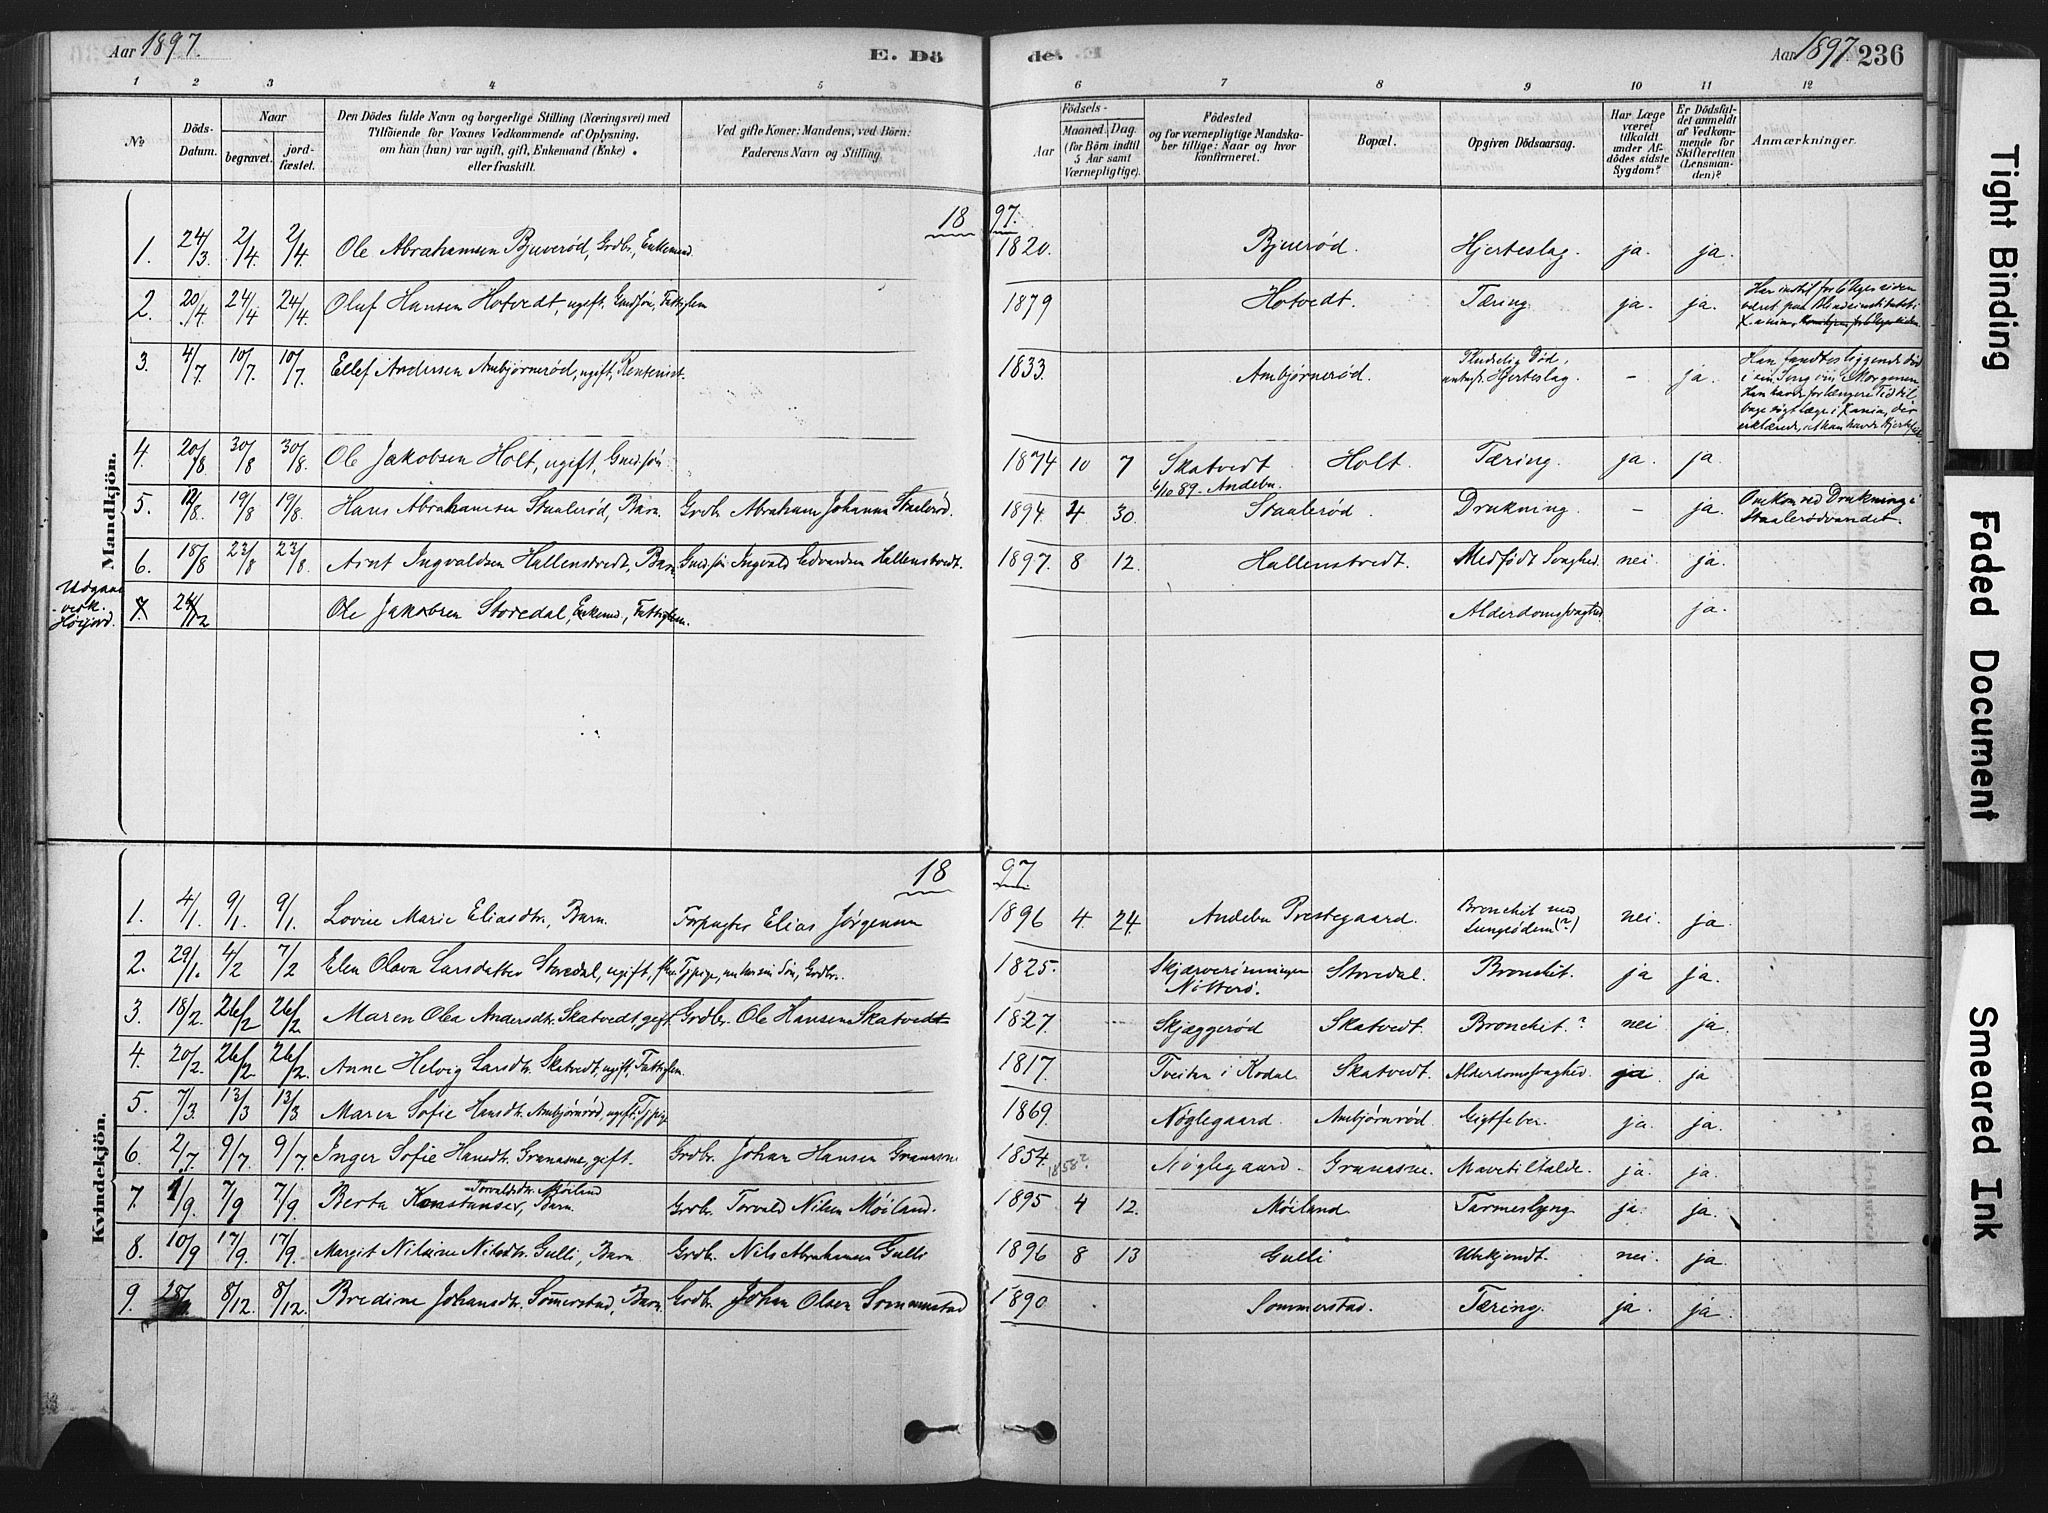 Aar 1897. E. Döde. Aar 1897 236
1 2 3 4 5 6 7 8 9 10 11 12
№ Döds-Datum. Naar begravet. jordfæstet. Den Dödes fulde Navn og borgerlige Stilling (Næringsvei) med Tilföiende for Voxnes Vedkommende af Oplysning, om han (hun) var ugift, gift, Enkemand (Enke) eller fraskilt. Ved gifte Koner: Mandens, ved Börn: Faderens Navn og Stilling. Födsels- Aar Maaned. Dag. (for Börn indtil 5 Aar samt Værnepligtige). Födested og for værnepligtige Mandskaber tillige: Naar og hvor konfirmeret. Bopæl. Opgiven Dödsaarsag. Har Læge været tilkaldt under Afdödes sidste Sygdom? Er Dödsfaldet anmeldt af Vedkommende for Skifteretten (Lensmanden)? Anmærkninger.
Mandkjön.
1897.
1. 24/3. 2/4. 2/4. Ole Abrahamsen Bjuerød, Grdbr., Enkemand. 1820. Bjuerød. Hjerteslag. ja. ja.
2. 20/4. 24/4 24/4. Oluf Hansen Hotvedt, ugift. Gaardsøn, Fattiglem 1879 Hotvedt. Tæring. ja. ja.
3. 4/7. 10/7. 10/7. Ellef Andersen Ambjørnerød, ugift, Rentenist. 1833. Ambjørnerød. Pludselig Død, Hjerteslag. - ja. Han fandtes liggende død i sin Seng om Morgenen. Han havde for længere Tid tilbage søgt Læge i Xania, der erklærede, at han havde Hjertefeil.
4. 20/8. 30/8 30/8. Ole Jakobsen Holt, ugift, Gaardsøn. 1874 10 7 Skatvedt 6/10 89. Andebu. Holt. Tæring. ja. ja.
5. 12/8. 19/8 19/8. Hans Abrahamsen Staalerød, Barn. Grdbr. Abraham Johannsen Staalerød. 1894. 4 30. Staalerød Drukning. - ja. Omkom ved Drukning i Staalerødvandet.
6. 18/8 23/8 23/8. Arnt Ingvaldsen Hallenstvedt, Barn. Ingvald Edvardsen Hallenstvedt. 1897. 8 12. Hallenstvedt. Medfødt Svaghed. nei. ja.
7 24/12 Ole Jakobsen Storedal, Enkemd., Fattiglem. Alderdomssvaghed ja.
Kvindekjön.
1897
1. 4/1. 9/1. 9/1. Lovise Marie Eliasdtr., Barn. Forpagter Elias Jørgensen 1896 4. 24. Andebu Prestegaard. Bronchit med Lungeødem (?) nei. ja.
2. 29/1. 4/2 7/2 Elen Olava Larsdatter Storedal, ugift, Grdbr. 1825. Skjærveröunningen Nötterö. Storedal. Bronchit. ja ja.
3. 18/2. 26/2 26/2 Maren Olea Andersdtr. Skatvedt, gift. Grdbr. Ole Hansen Skatvedt 1827 Skjæggerød Skatvedt. Bronchit? nei. ja.
4. 20/2. 26/2. 26/2. Anne Helvig Larsdtr. Skatvedt, ugift, Fattiglem. 1817. Tveiten i Kodal. Skatvedt. Alderdomssvaghed. ja. ja
5. 7/3. 13/3 13/3 Maren Sofie Hansdtr. Ambjørnrød, ugift, Tjpige 1869. Nøglegaard. Ambjørnrød. Gigtfeber. ja. ja.
6. 2/7 9/7. 9/7. Inger Sofie Hansdtr. Granasne, gift. Grdbr. Johan Hansen Granasne 1854. 1858? Nøglegaard. Granasne. Mavetilfælde. ja. ja.
7. 1/9. 7/9 7/9. Berta Konstanse Torvaldsdtr. Møiland, Barn. Grdbr. Torvald Nilsen Møiland. 1895 4 12. Møiland. Tarmeslyng ja. ja.
8. 10/9 17/9. 17/9. Margit Niline Nilsdtr. Gulli, Barn. Grdbr. Nils Abrahamsen Gulli 1896 8 13 Gulli Ubekjendt. nei. ja
9. 8/12. 8/12. Bredine Johansdtr. Sommerstad, Barn. Grdbr. Johan Olsen Sommerstad 1890. Sommerstad. Tæring. ja. ja.
Tight Binding
Faded Document
Smeared Ink